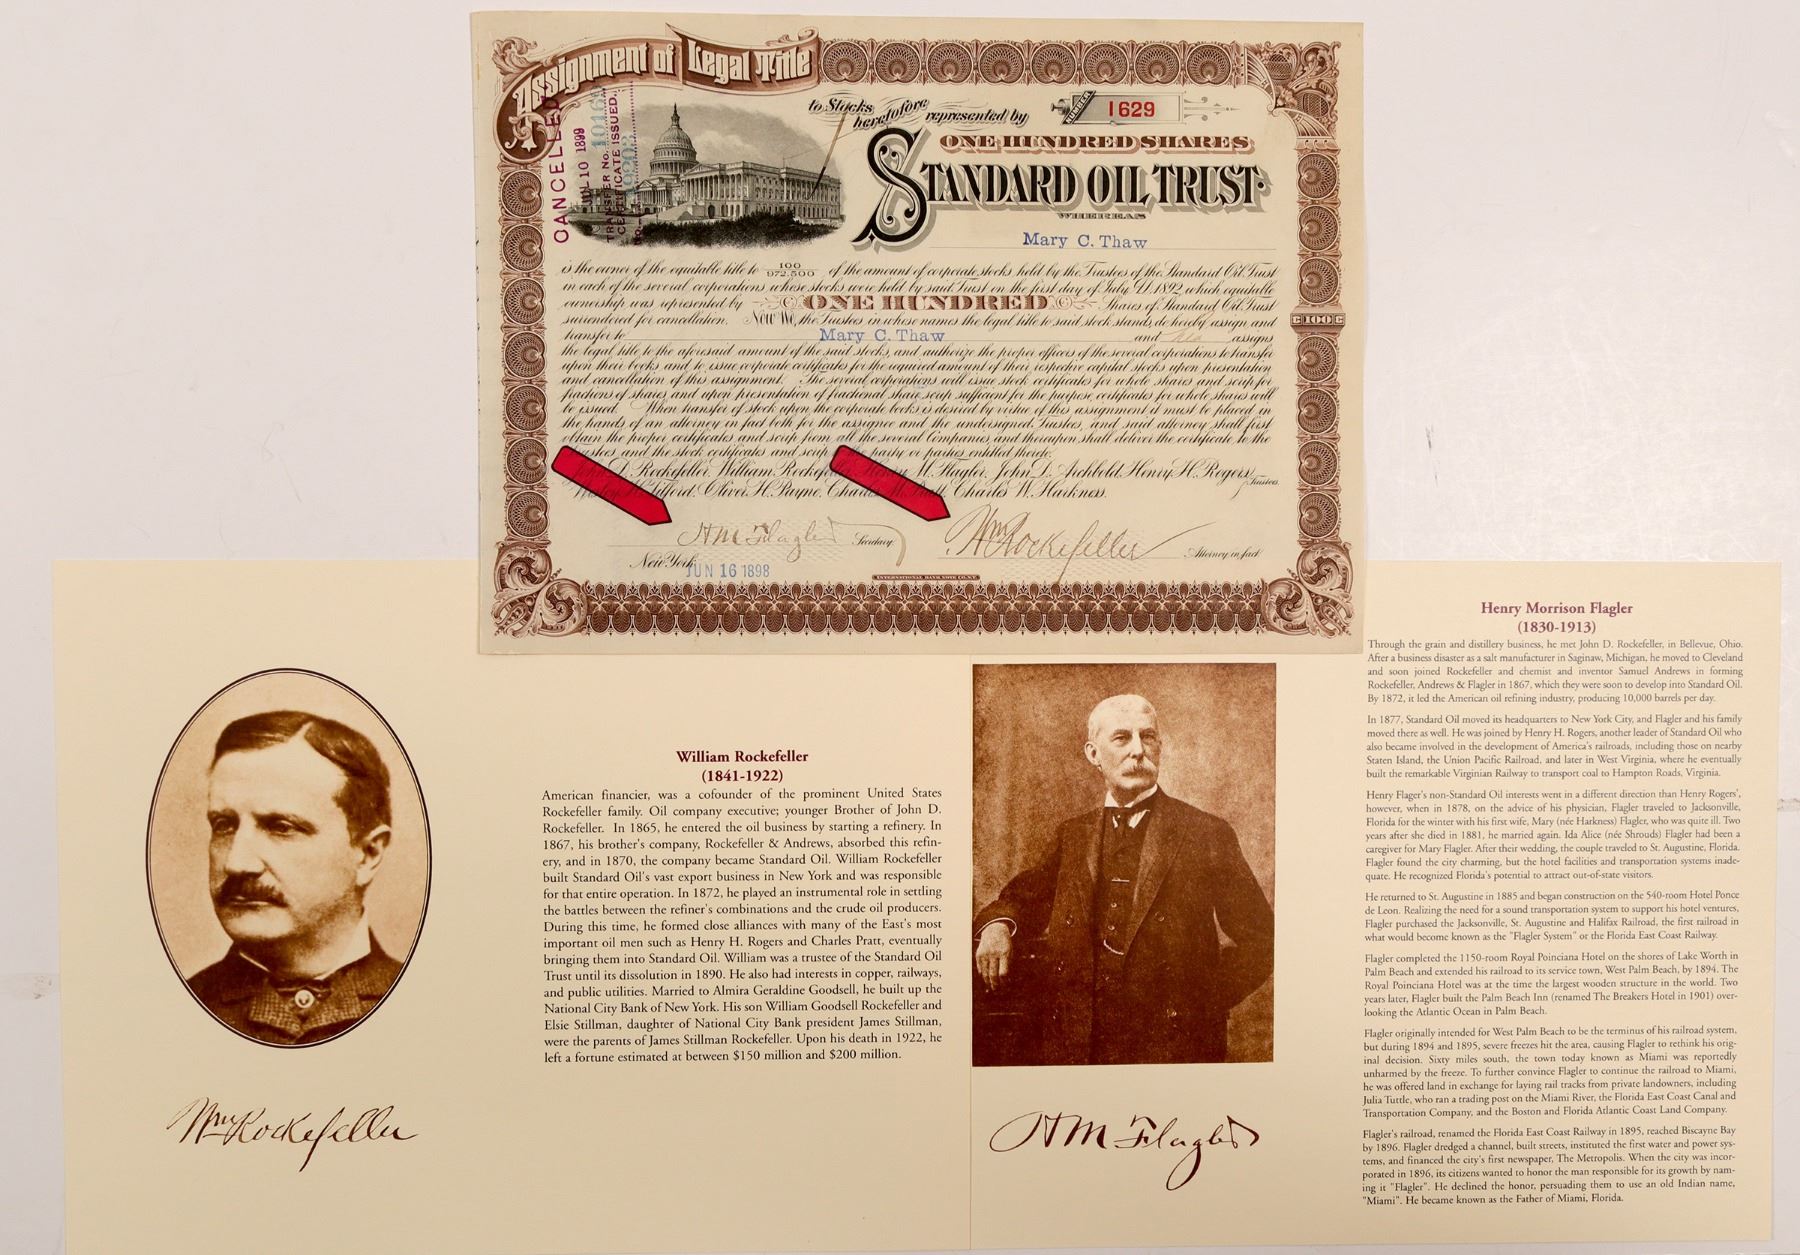 Assignment of Legal Title
to Stocks heretofore represented by
NUMBER 1629
ONE HUNDRED SHARES
STANDARD OIL TRUST.
WHEREAS
Mary C. Thaw
CANCELLED
JUL 10 1899
TRANSFER No.
CERTIFICATE ISSUED.
No.
is the owner of the equitable title to 100/972.500 of the amount of corporate stocks held by the Trustees of the Standard Oil Trust
in each of the several corporations whose stocks were held by said Trust on the first day of July A.D. 1892, which equitable
ownership was represented by ONE HUNDRED Shares of Standard Oil Trust
surrendered for cancellation. Now We, the Trustees in whose names the legal title to said stock stands, do hereby assign and
transfer to Mary C. Thaw and her assigns
the legal title to the aforesaid amount of the said stocks, and authorize the proper officers of the several corporations to transfer
upon their books and to issue corporate certificates for the required amount of their respective capital stocks upon presentation
and cancellation of this assignment. The several corporations will issue stock certificates for whole shares and scrip for
fractions of shares, and upon presentation of fractional share scrip sufficient for the purpose, certificates for whole shares will
be issued. When transfer of stock upon the corporate books is desired by virtue of this assignment it must be placed in
the hands of an attorney in fact both for the assignee and the undersigned Trustees, and said attorney shall first
obtain the proper certificates and scrip from all the several Companies, and thereupon shall deliver the certificate to the
Trustees and the stock certificates and scrip to the party or parties entitled thereto.
John D. Rockefeller, William Rockefeller, Henry M. Flagler, John D. Archbold, Henry H. Rogers,
Wesley H. Tilford, Oliver H. Payne, Charles M. Pratt, Charles W. Harkness. Trustees.
£100£
H M Flagler Secretary Wm Rockefeller Attorney in fact
New York JUN 16 1898
INTERNATIONAL BANK NOTE CO. N.Y.
William Rockefeller
(1841-1922)
American financier, was a cofounder of the prominent United States
Rockefeller family. Oil company executive; younger Brother of John D.
Rockefeller. In 1865, he entered the oil business by starting a refinery. In
1867, his brother's company, Rockefeller & Andrews, absorbed this refin-
ery, and in 1870, the company became Standard Oil. William Rockefeller
built Standard Oil's vast export business in New York and was responsible
for that entire operation. In 1872, he played an instrumental role in settling
the battles between the refiner's combinations and the crude oil producers.
During this time, he formed close alliances with many of the East's most
important oil men such as Henry H. Rogers and Charles Pratt, eventually
bringing them into Standard Oil. William was a trustee of the Standard Oil
Trust until its dissolution in 1890. He also had interests in copper, railways,
and public utilities. Married to Almira Geraldine Goodsell, he built up the
National City Bank of New York. His son William Goodsell Rockefeller and
Elsie Stillman, daughter of National City Bank president James Stillman,
were the parents of James Stillman Rockefeller. Upon his death in 1922, he
left a fortune estimated at between $150 million and $200 million.
Wm Rockefeller
H M Flagler
Henry Morrison Flagler
(1830-1913)
Through the grain and distillery business, he met John D. Rockefeller, in Bellevue, Ohio.
After a business disaster as a salt manufacturer in Saginaw, Michigan, he moved to Cleveland
and soon joined Rockefeller and chemist and inventor Samuel Andrews in forming
Rockefeller, Andrews & Flagler in 1867, which they were soon to develop into Standard Oil.
By 1872, it led the American oil refining industry, producing 10,000 barrels per day.
In 1877, Standard Oil moved its headquarters to New York City, and Flagler and his family
moved there as well. He was joined by Henry H. Rogers, another leader of Standard Oil who
also became involved in the development of America's railroads, including those on nearby
Staten Island, the Union Pacific Railroad, and later in West Virginia, where he eventually
built the remarkable Virginian Railway to transport coal to Hampton Roads, Virginia.
Henry Flager's non-Standard Oil interests went in a different direction than Henry Rogers',
however, when in 1878, on the advice of his physician, Flagler traveled to Jacksonville,
Florida for the winter with his first wife, Mary (née Harkness) Flagler, who was quite ill. Two
years after she died in 1881, he married again. Ida Alice (née Shrouds) Flagler had been a
caregiver for Mary Flagler. After their wedding, the couple traveled to St. Augustine, Florida.
Flagler found the city charming, but the hotel facilities and transportation systems inade-
quate. He recognized Florida's potential to attract out-of-state visitors.
He returned to St. Augustine in 1885 and began construction on the 540-room Hotel Ponce
de Leon. Realizing the need for a sound transportation system to support his hotel ventures,
Flagler purchased the Jacksonville, St. Augustine and Halifax Railroad, the first railroad in
what would become known as the "Flagler System" or the Florida East Coast Railway.
Flagler completed the 1150-room Royal Poinciana Hotel on the shores of Lake Worth in
Palm Beach and extended his railroad to its service town, West Palm Beach, by 1894. The
Royal Poinciana Hotel was at the time the largest wooden structure in the world. Two
years later, Flagler built the Palm Beach Inn (renamed The Breakers Hotel in 1901) over-
looking the Atlantic Ocean in Palm Beach.
Flagler originally intended for West Palm Beach to be the terminus of his railroad system,
but during 1894 and 1895, severe freezes hit the area, causing Flagler to rethink his orig-
inal decision. Sixty miles south, the town today known as Miami was reportedly
unharmed by the freeze. To further convince Flagler to continue the railroad to Miami,
he was offered land in exchange for laying rail tracks from private landowners, including
Julia Tuttle, who ran a trading post on the Miami River, the Florida East Coast Canal and
Transportation Company, and the Boston and Florida Atlantic Coast Land Company.
Flagler's railroad, renamed the Florida East Coast Railway in 1895, reached Biscayne Bay
by 1896. Flagler dredged a channel, built streets, instituted the first water and power sys-
tems, and financed the city's first newspaper, The Metropolis. When the city was incor-
porated in 1896, its citizens wanted to honor the man responsible for its growth by nam-
ing it "Flagler". He declined the honor, persuading them to use an old Indian name,
"Miami". He became known as the Father of Miami, Florida.